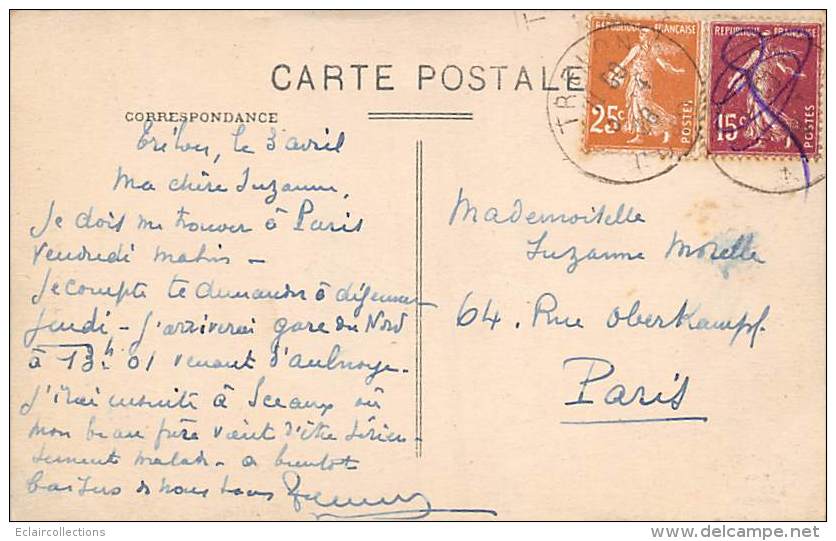 CARTE POSTALE
CORRESPONDANCE
Trélon, le 3 avril
Ma chère Suzanne,
Je dois me trouver à Paris
vendredi matin -
Je compte te demander à déjeuner
Jeudi - J'arriverai gare du Nord
à 13h 01 venant d'aulnoye -
J'irai ensuite à Sceaux où
mon beau frère vient d'être sérieu-
sement malade - a bientôt
baisers de nous tous
Mademoiselle
Suzanne Morelle
64. Rue Oberkampf.
Paris
REPUBLIQUE FRANÇAISE
25c
POSTES
REPUBLIQUE FRANÇAISE
15c
POSTES
TRELON
Eclaircollections
http://www.delcampe.net